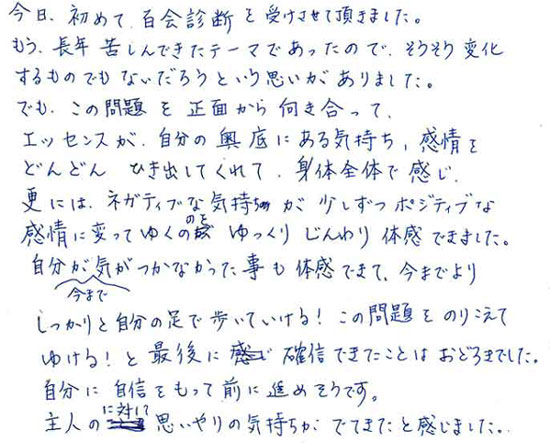 今日、初めて、百会診断を受けさせて頂きました。
もう、長年苦しんできたテーマであったので、そうそう変化
するものでもないだろうという思いがありました。
でも、この問題を正面から向き合って、
エッセンスが、自分の奥底にある気持ち、感情を
どんどん ひき出してくれて、身体全体で感じ、
更には、ネガティブな気持ちが少しずつポジティブな
感情に変ってゆくのを ゆっくり じんわり 体感できました。
自分が今まで気がつかなかった事も体感できて、今までより
しっかりと自分の足で歩いていける！この問題をのりこえて
ゆける！と最後に確信できたことはおどろきでした。
自分に自信をもって前に進めそうです。
主人のに対して思いやりの気持ちがでてきたと感じました。